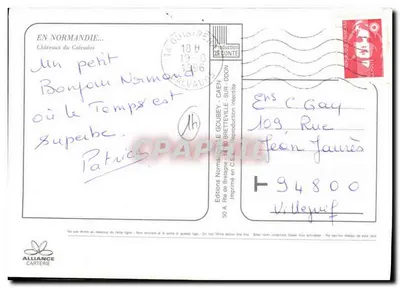 EN NORMANDIE...
Châteaux du Calvados
Un petit
Bonjour Normand
où le Temps est
superbe.
Patrick
14
18 H
CALVADOS
Production
LE CONTE
Editions Normandes LE GOUBEY - CAEN
30 A, Rte de Bretagne - 14760 BRETTEVILLE - SUR - ODON
Imprimé en C.E.E. - Reproduction interdite
Ens C. Gay
109 Rue
Jean Jaurès
T 94800
Villejuif
ALLIANCE
CARTERIE